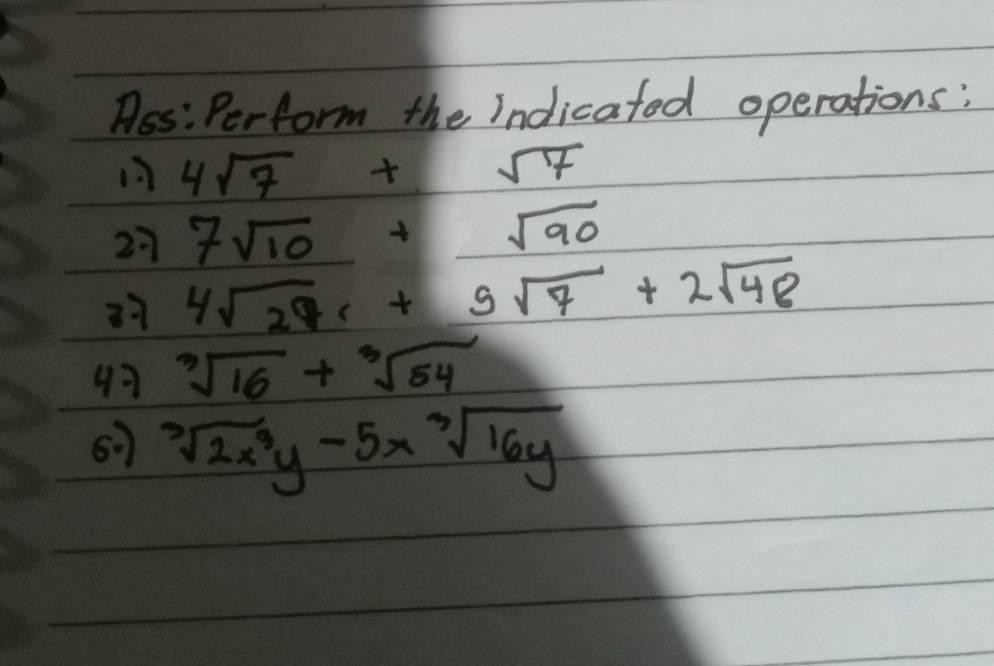 Ass: Perform the indicated operations:
1.) 4√7 + √7
2.) 7√10 + √90
3.) 4√ + 9√7 + 2√48
4.) ³√16 + ³√54
5.) ³√2x³y - 5x ³√16y